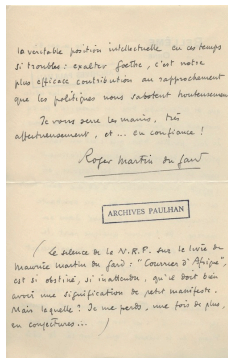 la véritable position intellectuelle en ces temps
si troublés : exalter Goethe, c'est notre
plus efficace contribution au rapprochement
que les politiques nous sabotent honteusement.
Je vous serre les mains, très
affectueusement, et ... en confiance !
Roger Martin du Gard
ARCHIVES PAULHAN
(Le silence de la N.R.F. sur le livre de
Maurice Martin du Gard : "Courrier d'Afrique",
est si obstiné, si inattendu, qu'il doit bien
avoir une signification de petit manifeste.
Mais laquelle ? Je me perds, une fois de plus,
en conjectures...)